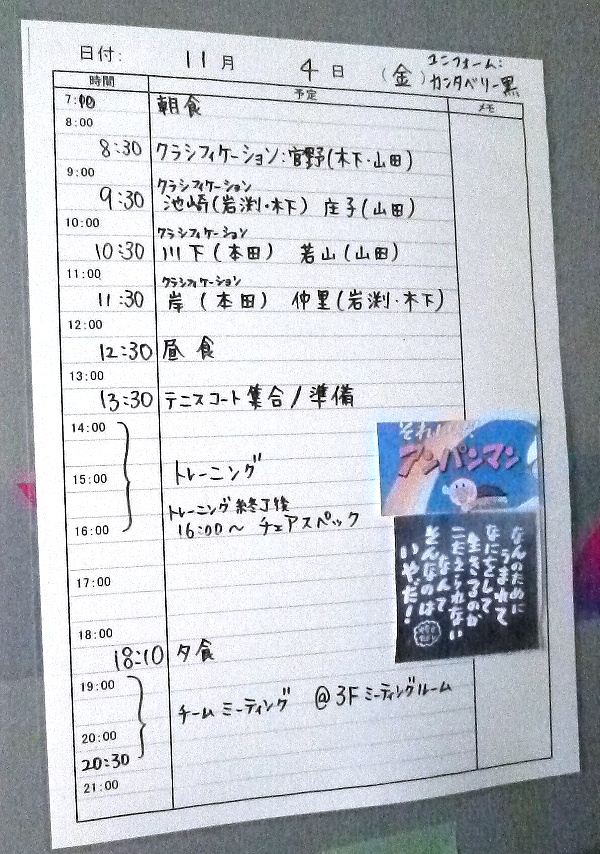 日付: 11月 4日 (金)
ユニフォーム:
カンタベリー黒
時間 予定 メモ
7:10 朝食
8:00
8:30 クラシフィケーション:官野(木下・山田)
9:00
クラシフィケーション
9:30 池崎(岩渕・木下) 庄子(山田)
10:00
クラシフィケーション
10:30 川下(本田) 若山(山田)
11:00
クラシフィケーション
11:30 岸(本田) 仲里(岩渕・木下)
12:00
12:30 昼食
13:00
13:30 テニスコート集合/準備
14:00
トレーニング
15:00
トレーニング終了後
16:00~ チェアスペック
16:00
17:00
18:00
18:10 夕食
19:00
チームミーティング @3Fミーティングルーム
20:00
20:30
21:00
それいけ!
アンパンマン
なんのために
うまれて
なにをして
生きるのか
こたえられない
なんて
そんなのは
いやだ!